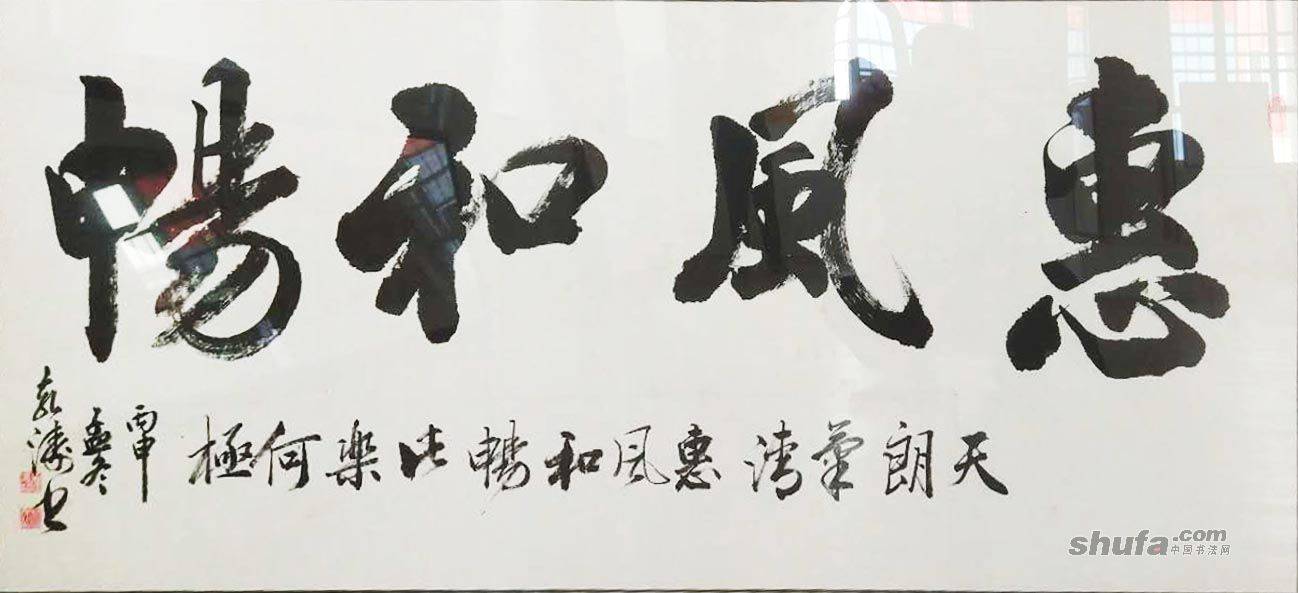 惠風和暢
天朗氣清惠風和暢此樂何極
丙申
孟冬
濤書
shufa.com
中国书法网